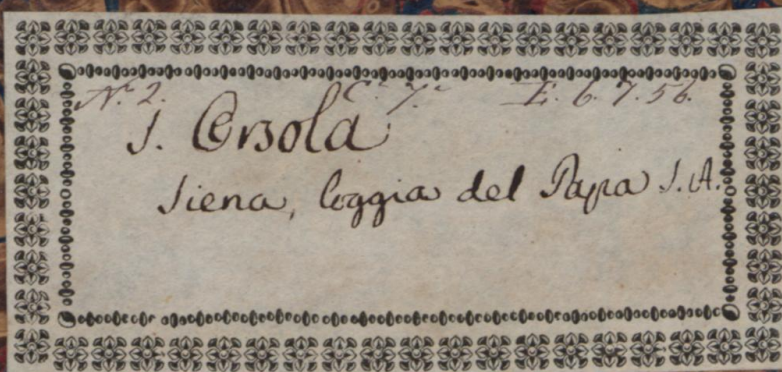 N.º 2. C.º 7.º E. 6. 7. 56.
S. Orsola
Siena, loggia del Papa S. A.